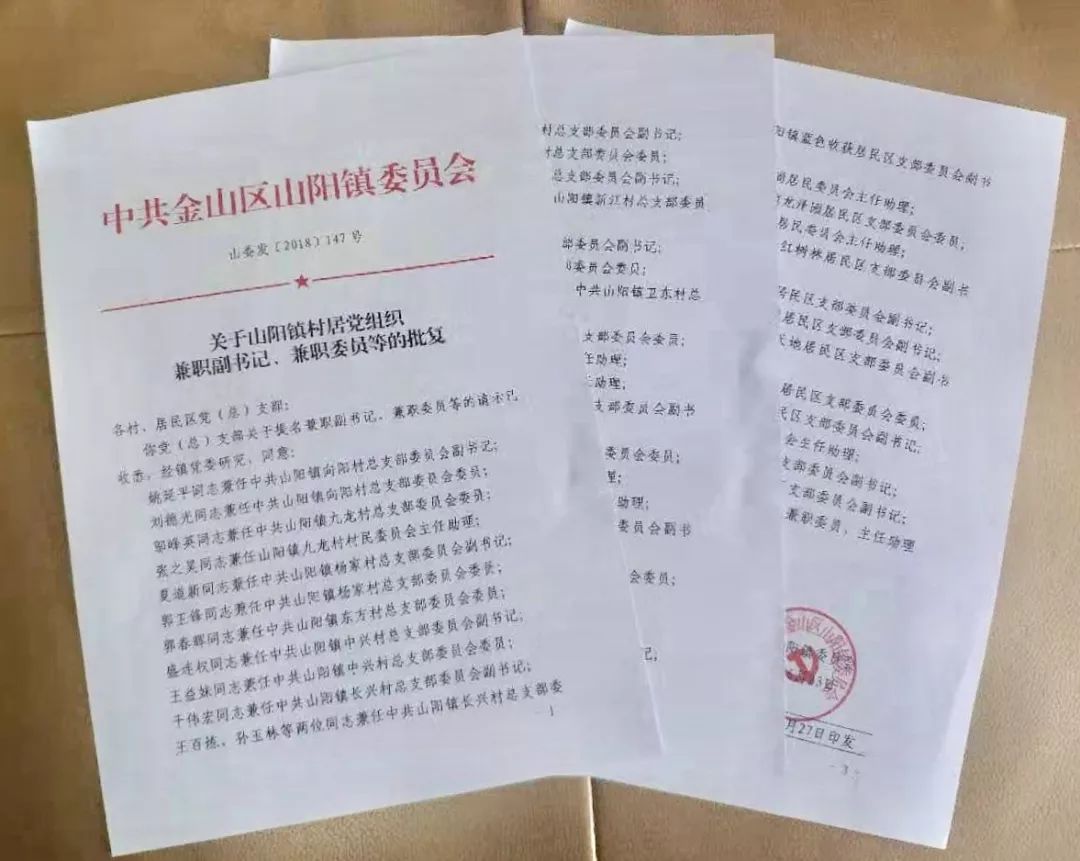 中共金山区山阳镇委员会
山委发〔2018〕147号
关于山阳镇村居党组织
兼职副书记、兼职委员等的批复
各村、居民区党（总）支部：
你党（总）支部关于提名兼职副书记、兼职委员等的请示已
收悉，经镇党委研究，同意：
姚延平同志兼任中共山阳镇向阳村总支部委员会副书记；
刘德光同志兼任中共山阳镇向阳村总支部委员会委员；
邬峰英同志兼任中共山阳镇九龙村总支部委员会委员；
张之昊同志兼任山阳镇九龙村村民委员会主任助理；
夏道新同志兼任中共山阳镇杨家村总支部委员会副书记；
郭王锋同志兼任中共山阳镇杨家村总支部委员会委员；
郭春晖同志兼任中共山阳镇东方村总支部委员会委员；
盛连权同志兼任中共山阳镇中兴村总支部委员会副书记；
王益妹同志兼任中共山阳镇中兴村总支部委员会委员；
干伟宏同志兼任中共山阳镇长兴村总支部委员会副书记；
王百拣、孙玉林等两位同志兼任中共山阳镇长兴村总支部委
- 1
村总支部委员会副书记；
总支部委员会委员；
总支部委员会副书记；
山阳镇新江村总支部委员
部委员会副书记；
委员会委员；
中共山阳镇卫东村总
支部委员会委员；
任助理；
助理；
支部委员会副书
委员会委员；
助理；
委员会副书
会委员；
记；
阳镇蓝色收获居民区支部委员会副书
居民委员会主任助理；
龙泽园居民区支部委员会委员；
居民委员会主任助理；
红树林居民区支部委员会副书
居民区支部委员会副书记；
居民区支部委员会副书记；
天地居民区支部委员会副书
居民区支部委员会委员；
民区支部委员会副书记；
会主任助理；
支部委员会副书记；
支部委员会副书记；
兼职委员、主任助理
金山区山阳镇委员会
阳镇委
3日
月27日印发
- 3 -